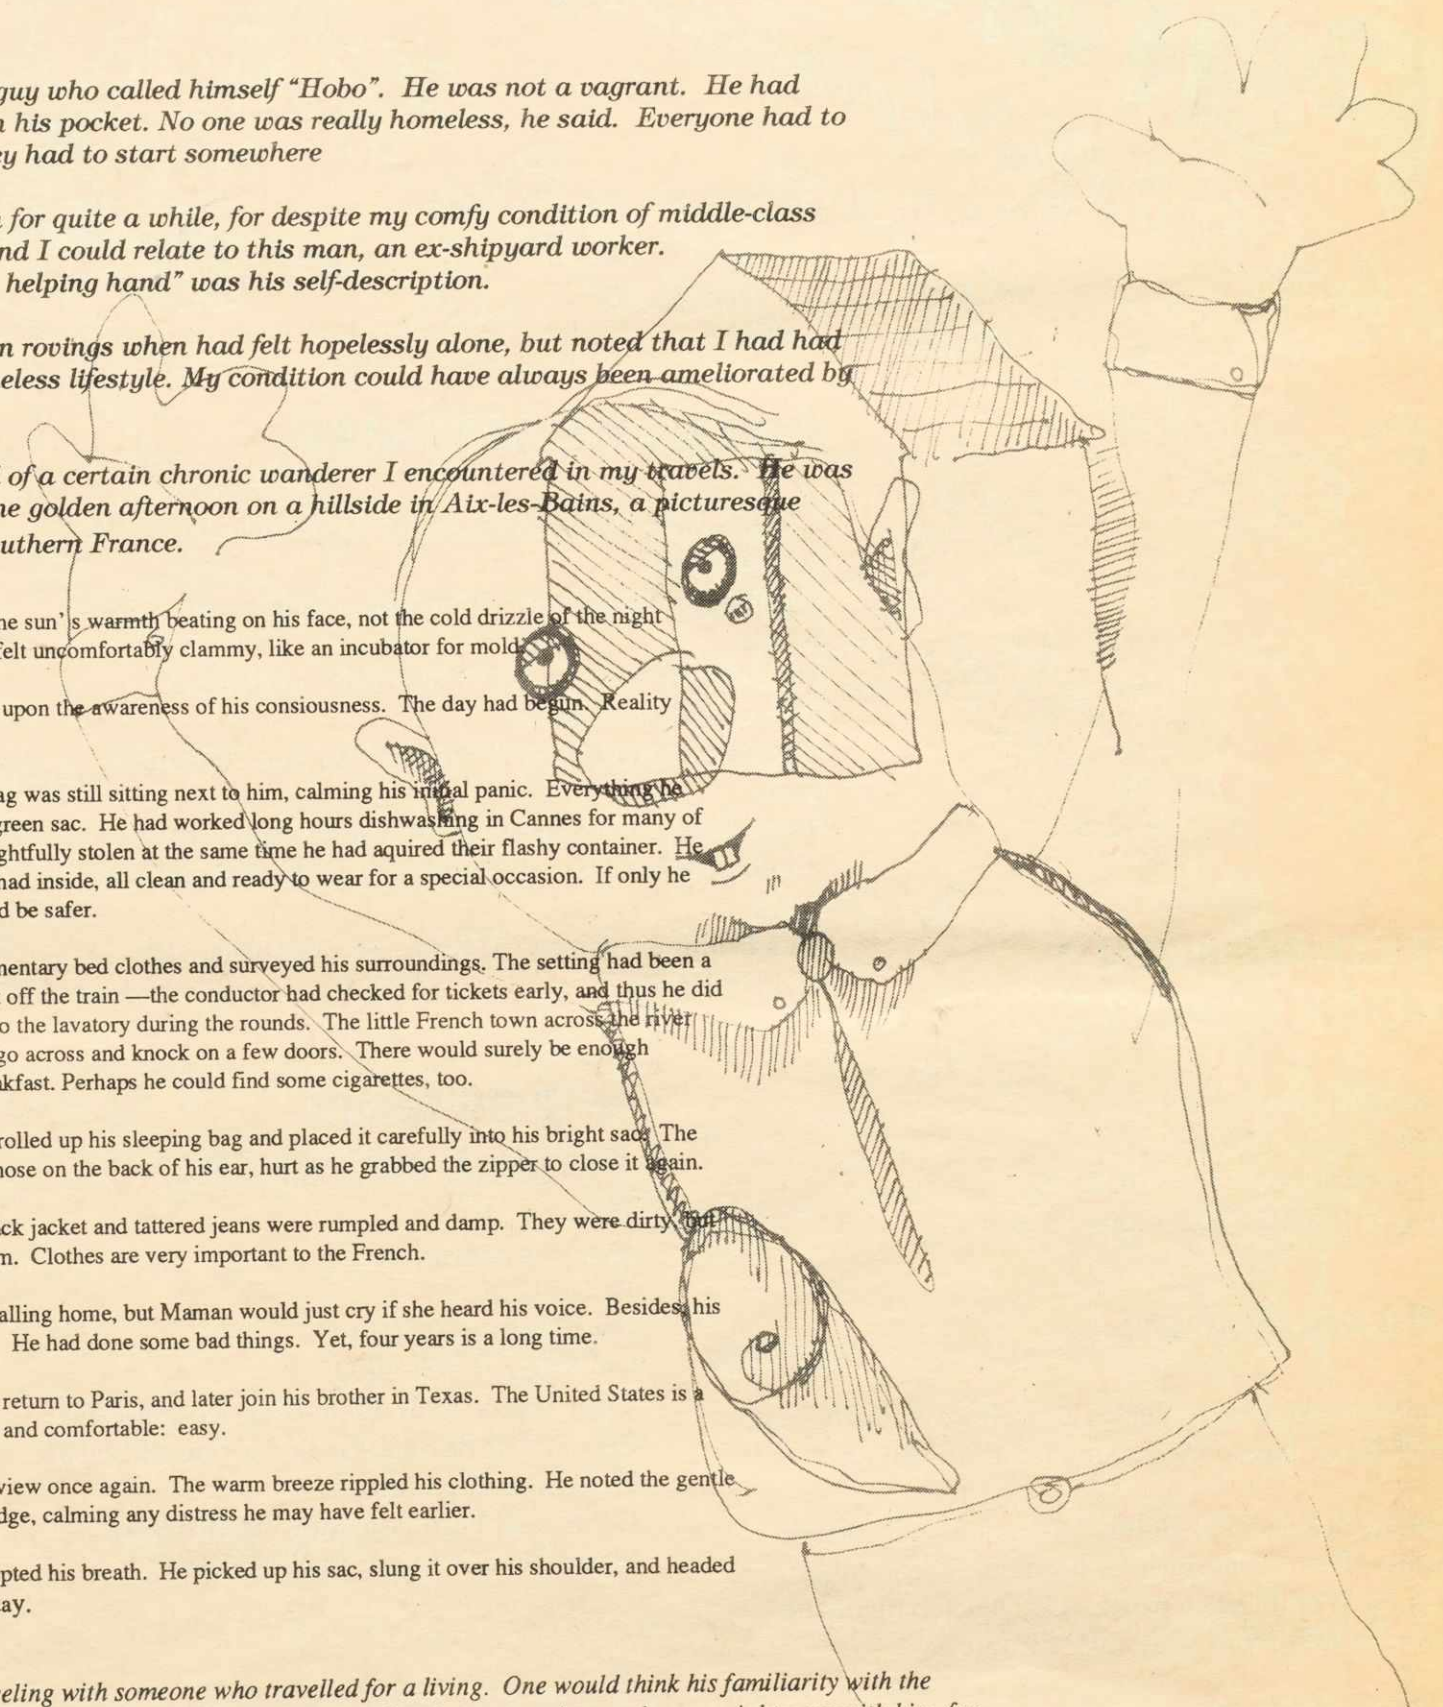 guy who called himself “Hobo”. He was not a vagrant. He had
his pocket. No one was really homeless, he said. Everyone had to
had to start somewhere
for quite a while, for despite my comfy condition of middle-class
I could relate to this man, an ex-shipyard worker.
helping hand” was his self-description.
rovings when had felt hopelessly alone, but noted that I had had
lifestyle. My condition could have always been ameliorated by
of a certain chronic wanderer I encountered in my travels. He was
golden afternoon on a hillside in Aix-les-Bains, a picturesque
France.
sun's warmth beating on his face, not the cold drizzle of the night
felt uncomfortably clammy, like an incubator for mold.
upon the awareness of his consiousness. The day had begun. Reality
was still sitting next to him, calming his initial panic. Everything he
green sac. He had worked long hours dishwashing in Cannes for many of
stolen at the same time he had aquired their flashy container. He
had inside, all clean and ready to wear for a special occasion. If only he
be safer.
bed clothes and surveyed his surroundings. The setting had been a
off the train —the conductor had checked for tickets early, and thus he did
the lavatory during the rounds. The little French town across the river
go across and knock on a few doors. There would surely be enough
Perhaps he could find some cigarettes, too.
rolled up his sleeping bag and placed it carefully into his bright sac. The
on the back of his ear, hurt as he grabbed the zipper to close it again.
jacket and tattered jeans were rumpled and damp. They were dirty, but
Clothes are very important to the French.
home, but Maman would just cry if she heard his voice. Besides, his
He had done some bad things. Yet, four years is a long time.
return to Paris, and later join his brother in Texas. The United States is a
and comfortable: easy.
view once again. The warm breeze rippled his clothing. He noted the gentle
calming any distress he may have felt earlier.
his breath. He picked up his sac, slung it over his shoulder, and headed
with someone who travelled for a living. One would think his familiarity with the